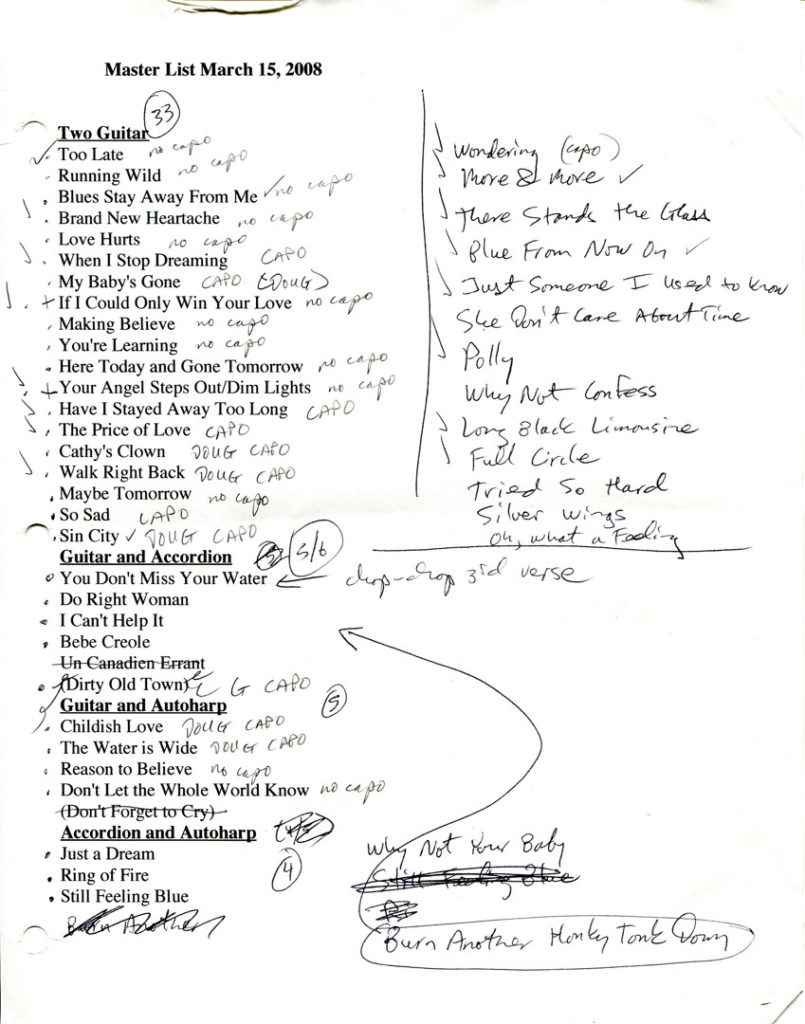 Master List March 15, 2008
33
Two Guitar
Too Late no capo
Running Wild no capo
Blues Stay Away From Me ✓ no capo
Brand New Heartache no capo
Love Hurts no capo
When I Stop Dreaming CAPO
My Baby's Gone CAPO (DOUG)
+ If I Could Only Win Your Love no capo
Making Believe no capo
You're Learning no capo
Here Today and Gone Tomorrow no capo
+ Your Angel Steps Out/Dim Lights no capo
Have I Stayed Away Too Long CAPO
The Price of Love CAPO
Cathy's Clown DOUG CAPO
Walk Right Back DOUG CAPO
Maybe Tomorrow no capo
So Sad CAPO
Sin City ✓ DOUG CAPO
Guitar and Accordion 5/6
You Don't Miss Your Water ← chop-chop 3rd verse
Do Right Woman
I Can't Help It
Bebe Creole
Un Canadien Errant
(Dirty Old Town) G CAPO
Guitar and Autoharp 5
Childish Love DOUG CAPO
The Water is Wide DOUG CAPO
Reason to Believe no capo
Don't Let the Whole World Know no capo
(Don't Forget to Cry)
Accordion and Autoharp
4
Just a Dream
Ring of Fire
Still Feeling Blue
Burn Another
Wondering (capo)
More & More ✓
There Stands the Glass
Blue From Now On ✓
Just Someone I used to know
She Don't Care About Time
Polly
Why Not Confess
Long Black Limousine
Full Circle
Tried So Hard
Silver Wings
Oh, what a Feeling
Why Not Your Baby
Still Feeling Blue
Burn Another Honky Tonk Down